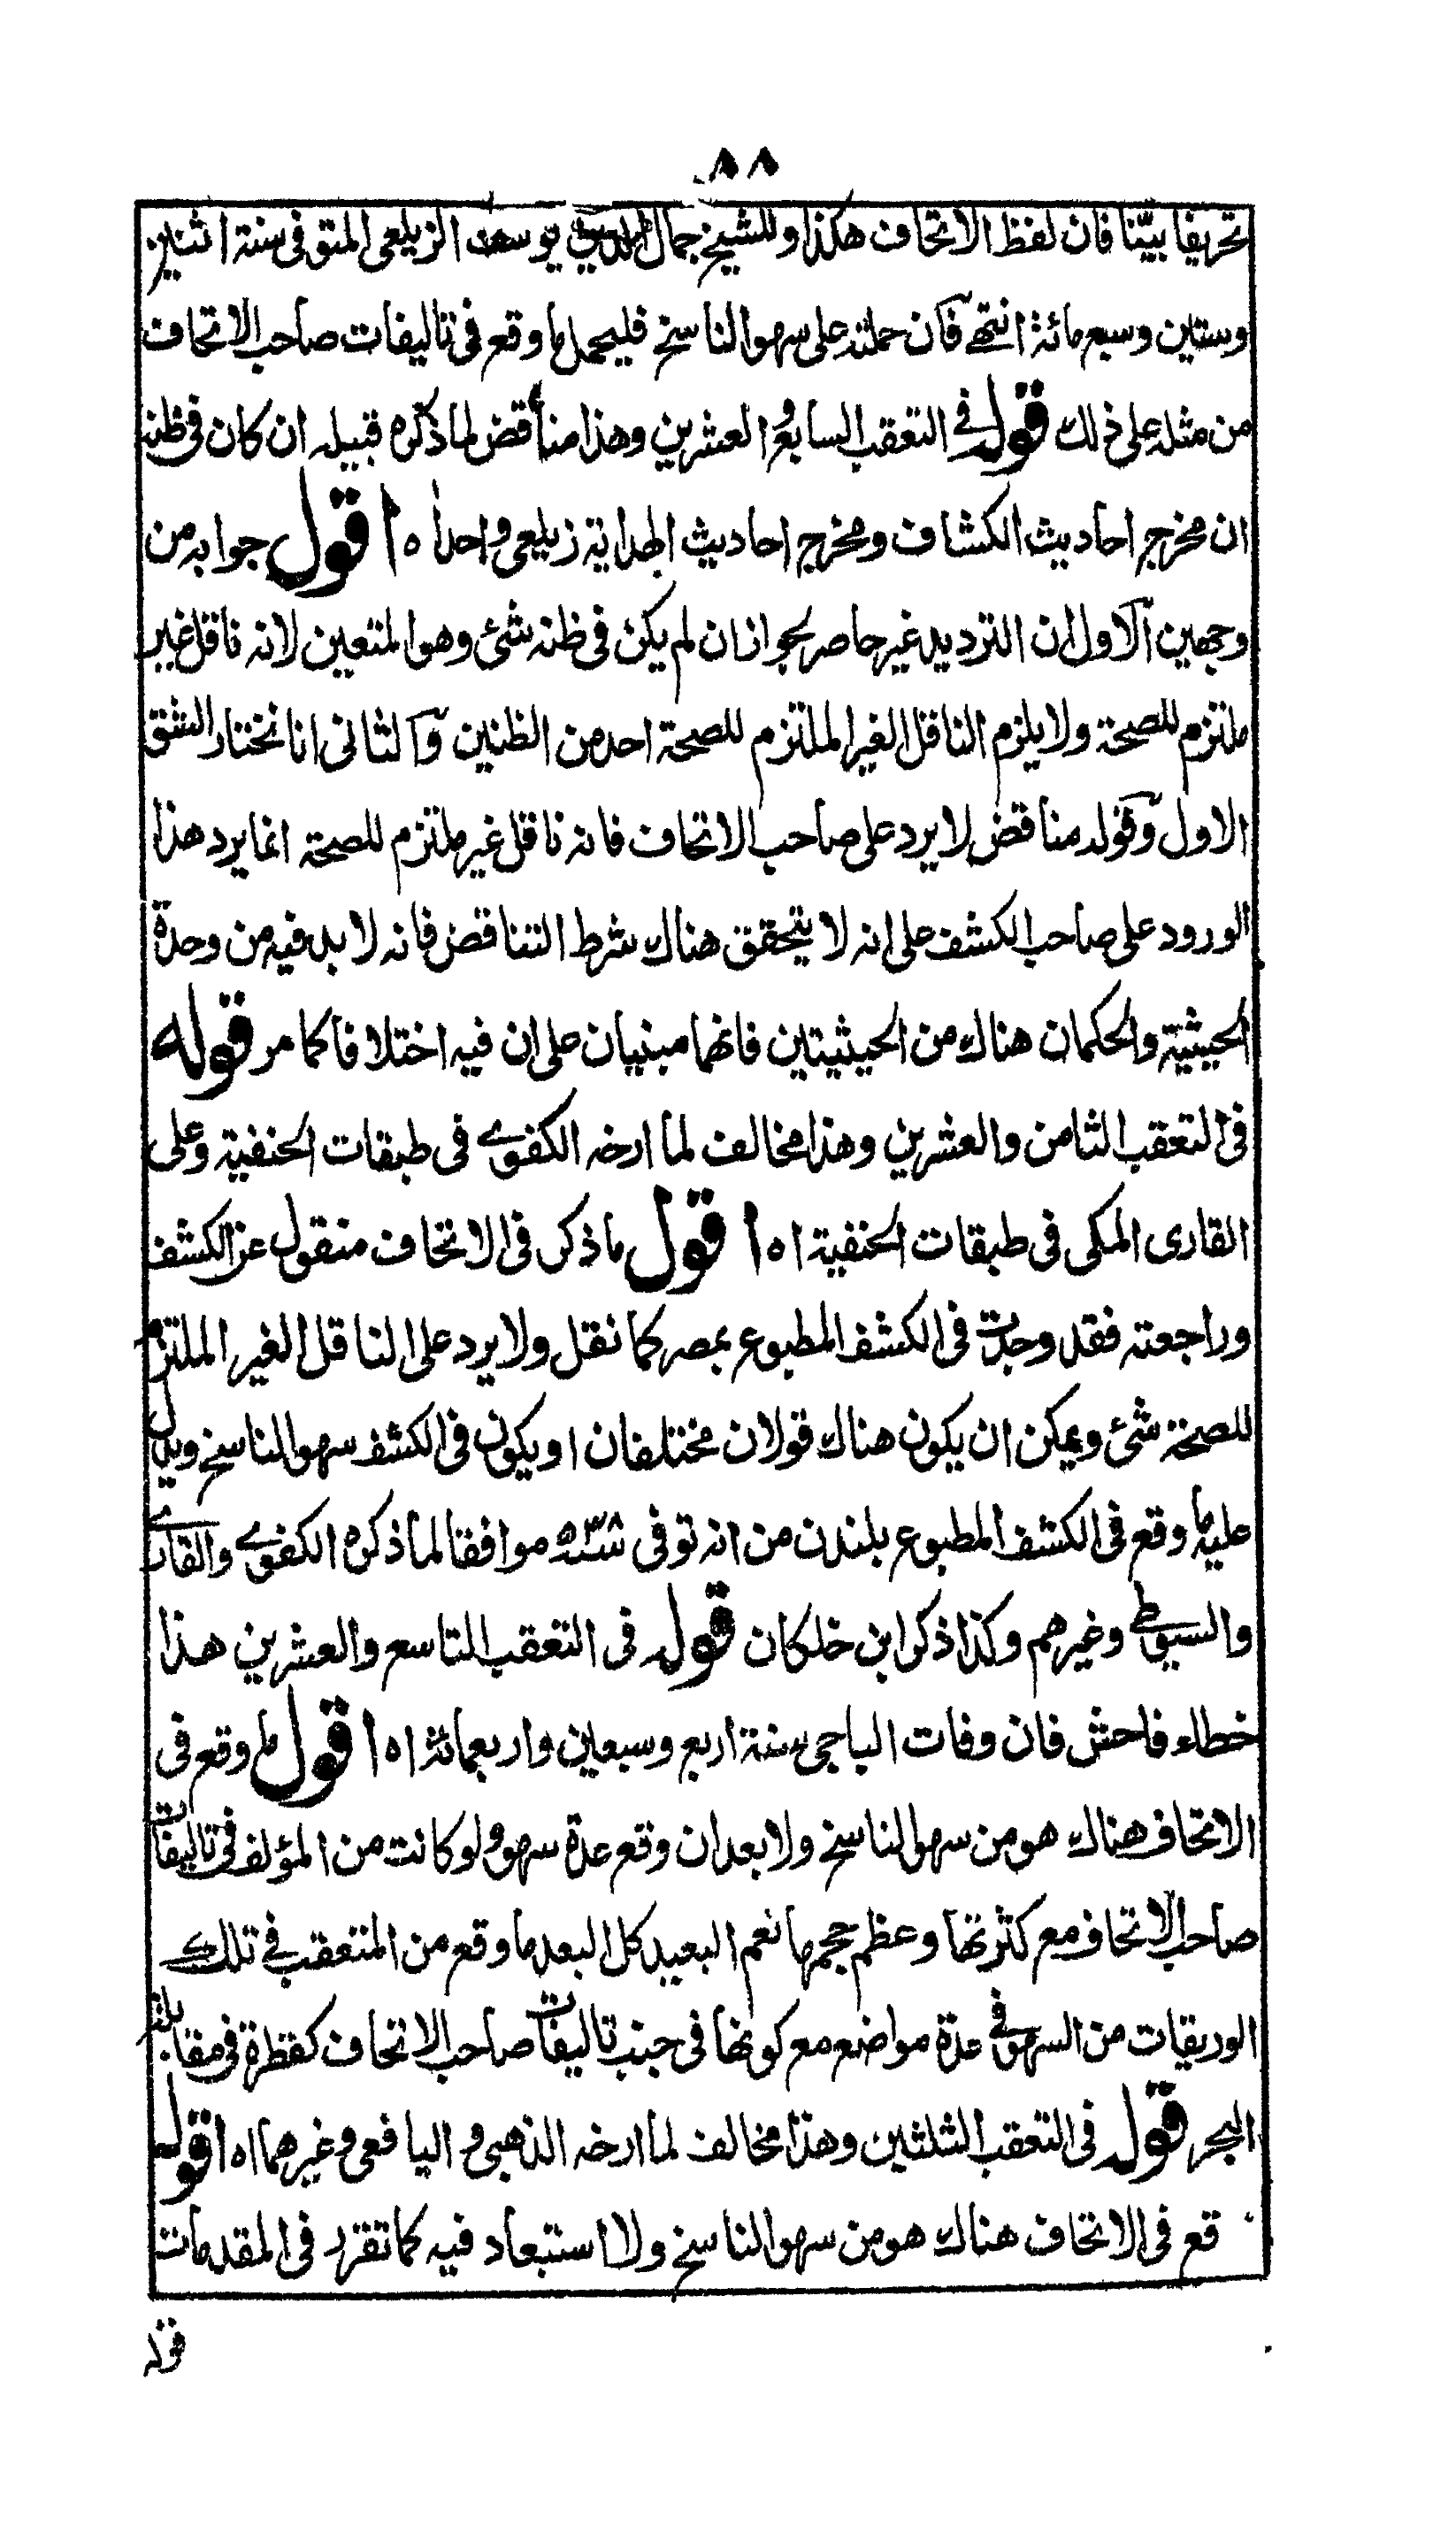 ٨٨
تحريفا بيّنا فان لفظ الاتحاف هكذا وللشيخ جمال الدين يوسف الزيلعى المتوفى سنة اثنين
وستين وسبع مائة انتهى فان حملته على سهو الناسخ فليحمل ما وقع فى تاليفات صاحب الاتحاف
من مثله على ذلك قوله فى التعقب السابع والعشرين وهذا مناقض لما ذكره قبيله ان كان فى ظنه
ان مخرج احاديث الكشاف ومخرج احاديث الهداية زيلعى واحدا ه اقول جوابه من
وجهين الاول ان الترديد غير حاصر لجواز ان لم يكن فى ظنه شئ وهو المتعين لانه ناقل غير
ملتزم للصحة ولا يلزم الناقل الغير الملتزم للصحة احد من الظنين والثانى انا نختار الشق
الاول وقوله مناقض لا يرد على صاحب الاتحاف فانه ناقل غير ملتزم للصحة انما يرد هذا
الورود على صاحب الكشف على انه لا يتحقق هناك شرط التناقض فانه لا بد فيه من وحدة
الحيثية والحكمان هناك من الحيثيتين فانهما مبنيان على ان فيه اختلافا كما مر قوله
فى التعقب الثامن والعشرين وهذا مخالف لما ارخه الكفوى فى طبقات الحنفية وعلى
القارى المكى فى طبقات الحنفية اه اقول ما ذكر فى الاتحاف منقول عن الكشف
وراجعته فقد وجدت فى الكشف المطبوع بمصر كما نقل ولا يرد على الناقل الغير الملتزم
للصحة شئ ويمكن ان يكون هناك قولان مختلفان او يكون فى الكشف سهو الناسخ ويدل
عليه ما وقع فى الكشف المطبوع بلندن من انه توفى موافقا لما ذكره الكفوى والقارى
والسيوطى وغيرهم وكذا ذكر ابن خلكان قوله فى التعقب التاسع والعشرين هذا
خطاء فاحش فان وفات الباجى سنة اربع وسبعين واربعمائة اه اقول ما وقع فى
الاتحاف هناك هو من سهو الناسخ ولا بعد ان وقع عدة سهو ولو كانت من المؤلف فى تاليفات
صاحب الاتحاف مع كثرتها وعظم حجمها نعم البعيد كل البعد ما وقع من المتعقب فى تلك
الوريقات من السهو فى عدة مواضع مع كونها فى جنب تاليفات صاحب الاتحاف كقطرة فى مقابلة
البحر قوله فى التعقب الثلثين وهذا مخالف لما ارخه الذهبى و اليافعى وغيرهما اه اقول
قع فى الاتحاف هناك هو من سهو الناسخ ولا استبعاد فيه كما تقرر فى المقدمات
قوله